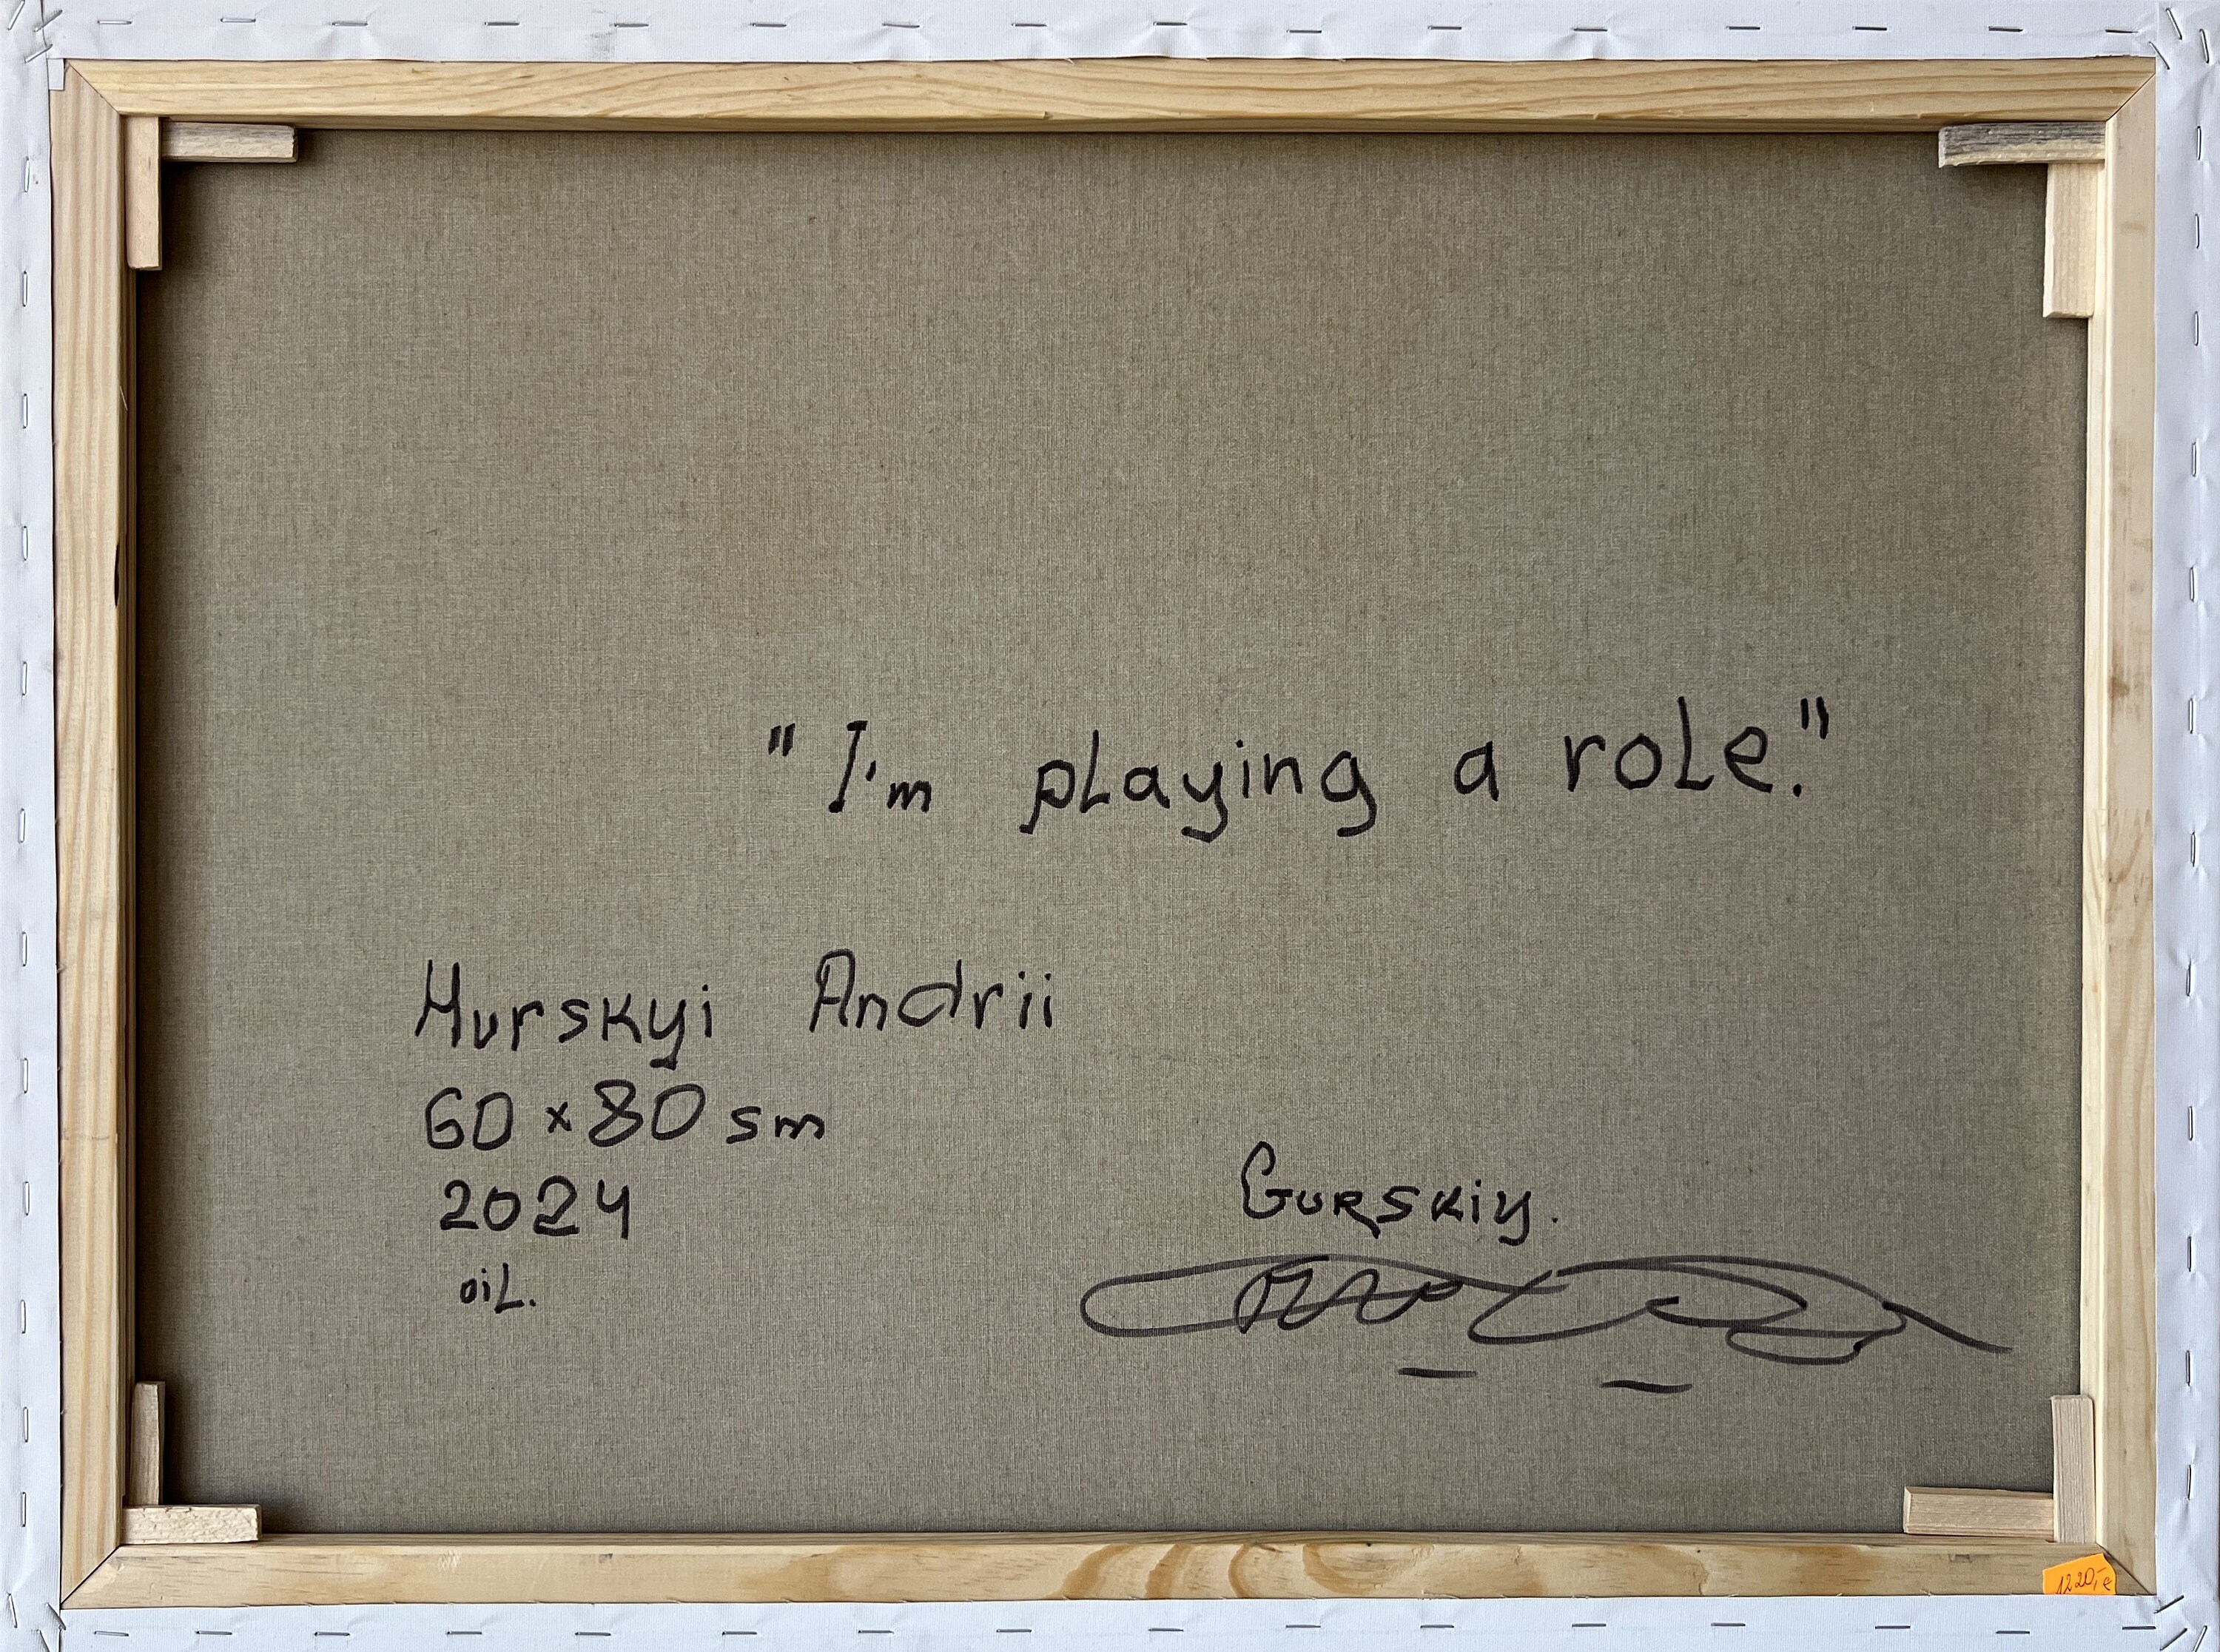 "I'm playing a role."
Hurskyi Andrii
60 x 80 sm
2024
oil.
Gurskiy.
1220,- €